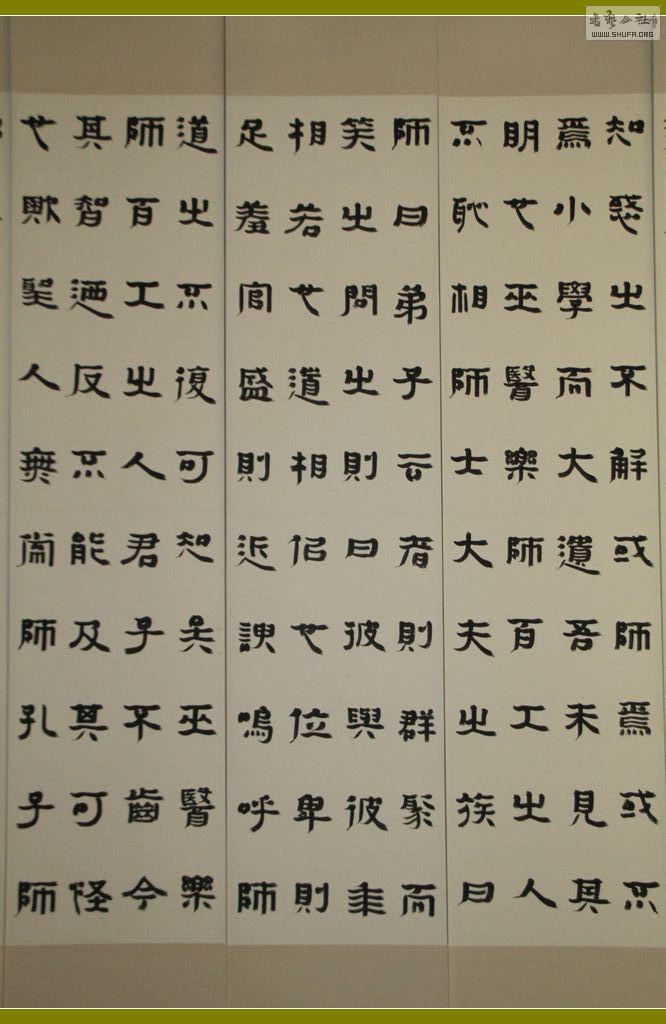 知惑之不解或師焉或不
焉小學而大遺吾未見其
明也巫醫樂師百工之人
不恥相師士大夫之族曰
師曰弟子云者則群聚而
笑之問之則曰彼與彼年
相若也道相佀也位卑則
足羞官盛則近諛嗚呼師
道之不復可知矣巫醫樂
師百工之人君子不齒今
其智迺反不能及其可怪
也歟聖人無常師孔子師
書藝公社
WWW.SHUFA.ORG